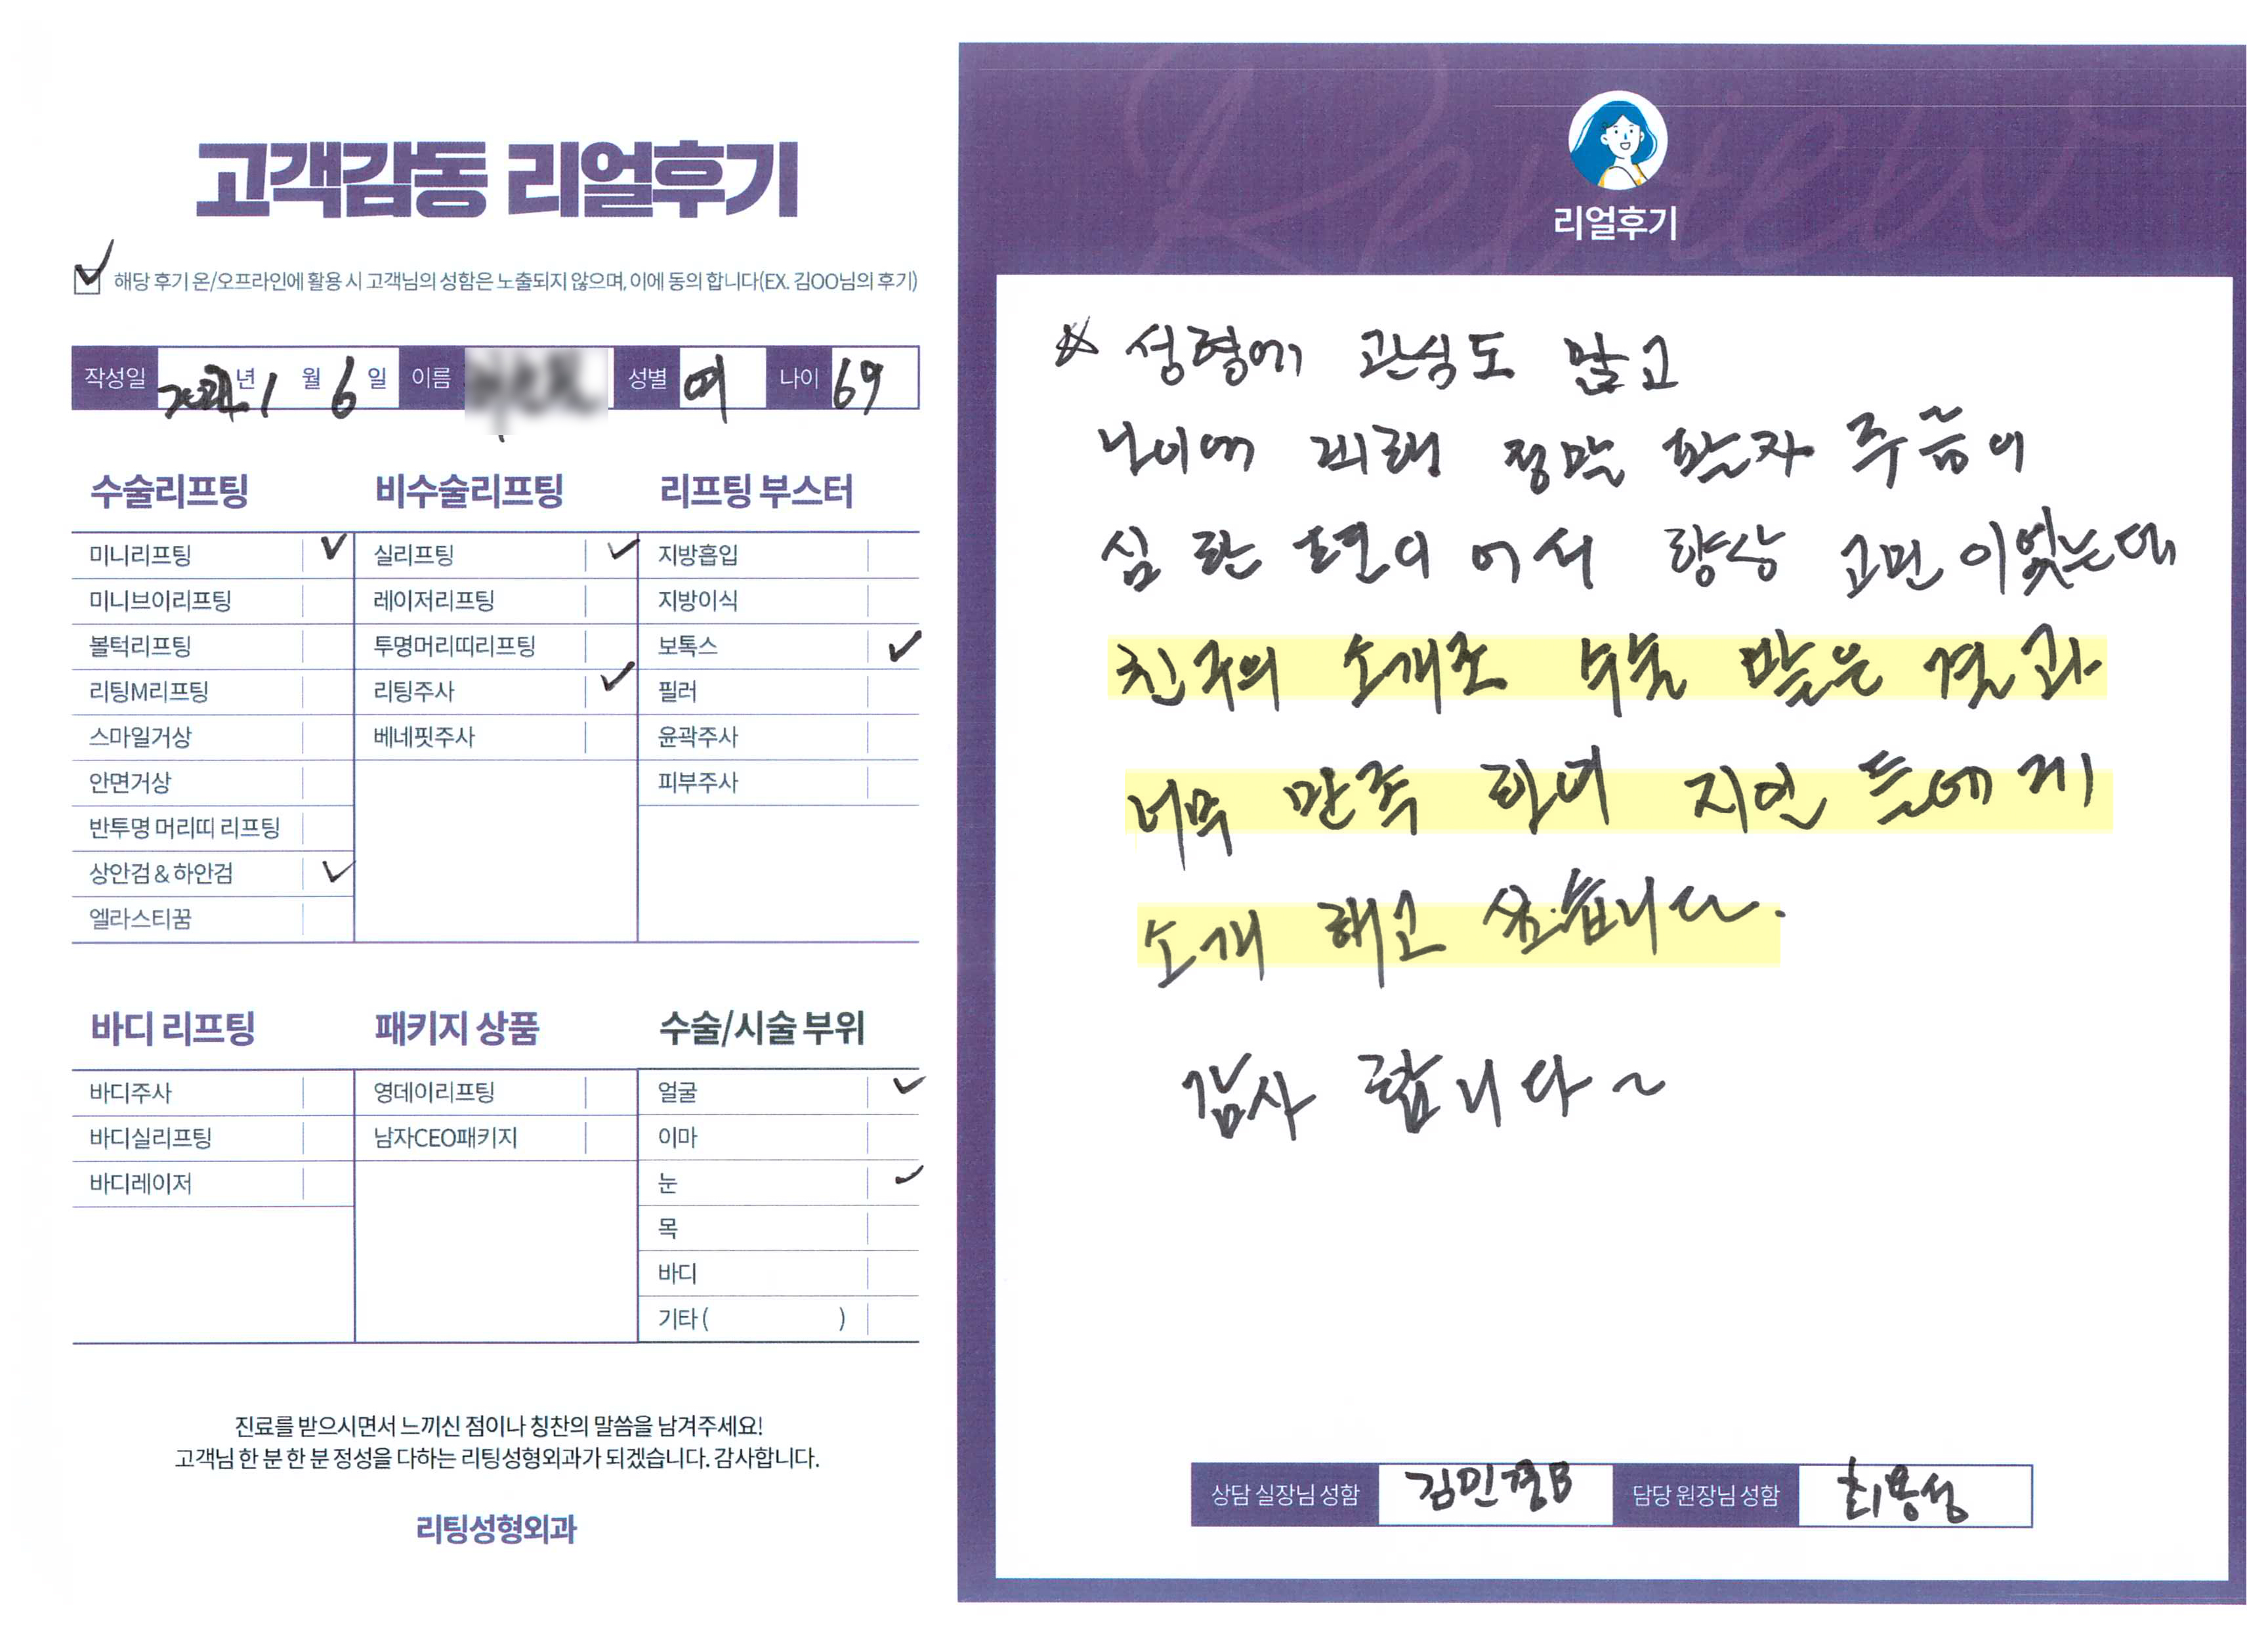 고객감동 리얼후기
해당 후기 온/오프라인에 활용 시 고객님의 성함은 노출되지 않으며, 이에 동의 합니다(EX. 김OO님의 후기)
작성일 년 1 월 6 일 이름 성별 여 나이 69
수술리프팅
미니리프팅
미니브이리프팅
볼턱리프팅
리팅M리프팅
스마일거상
안면거상
반투명 머리띠 리프팅
상안검 & 하안검
엘라스티꿈
비수술리프팅
실리프팅
레이저리프팅
투명머리띠리프팅
리팅주사
베네핏주사
리프팅 부스터
지방흡입
지방이식
보톡스
필러
윤곽주사
피부주사
바디 리프팅
바디주사
바디실리프팅
바디레이저
패키지 상품
영데이리프팅
남자CEO패키지
수술/시술 부위
얼굴
이마
눈
목
바디
기타 ( )
진료를 받으시면서 느끼신 점이나 칭찬의 말씀을 남겨주세요!
고객님 한 분 한 분 정성을 다하는 리팅성형외과가 되겠습니다. 감사합니다.
리팅성형외과
Review
리얼후기
성형에 관심도 많고
나이에 비해 정말 팔자 주름이
심한 편이어서 항상 고민이었는데
친구의 소개로 수술 받은 결과
너무 만족하여 지인들에게
소개 해고 싶습니다.
감사 합니다~
상담 실장님 성함 김민경B 담당 원장님 성함 최용성